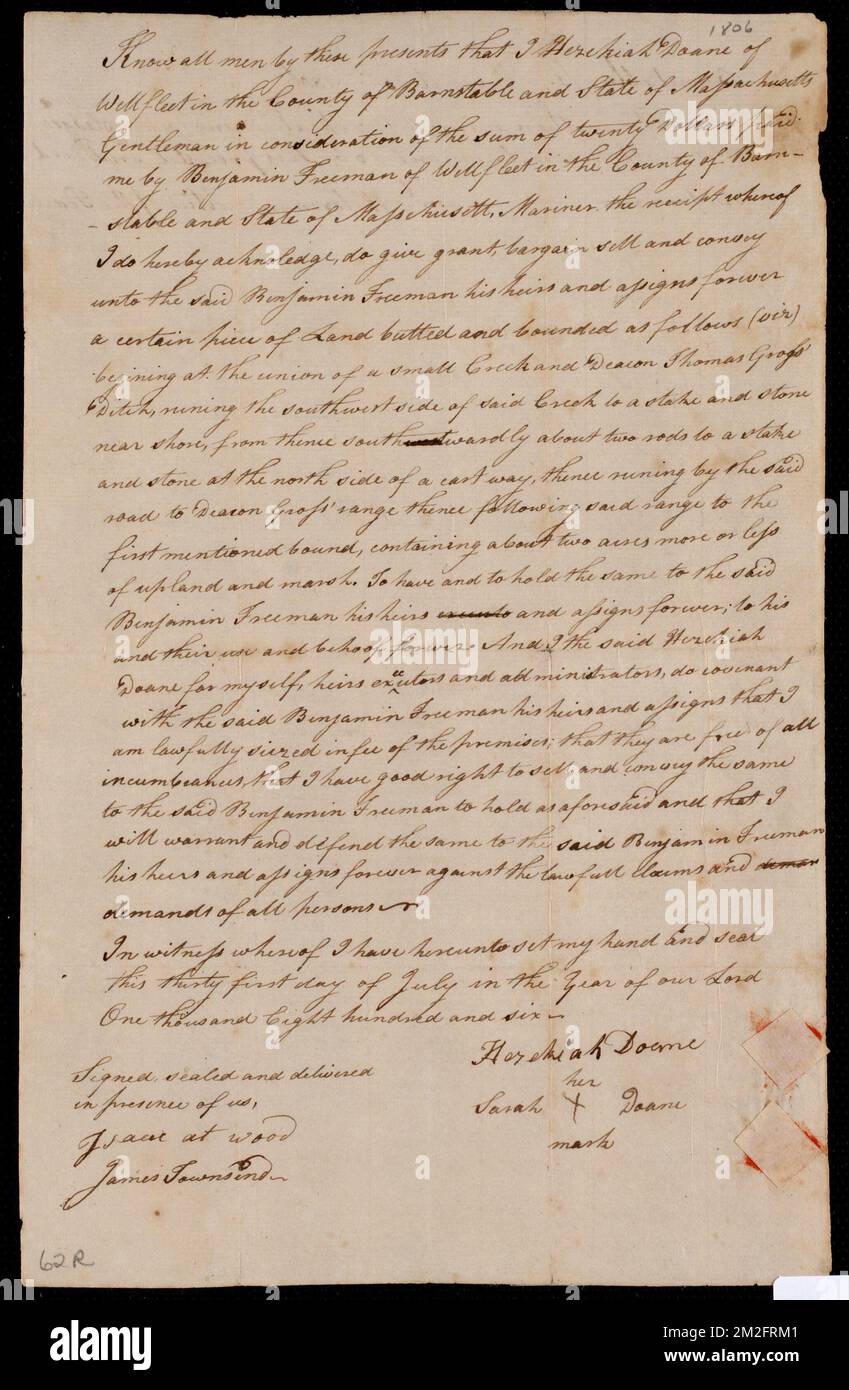 1806
Know all men by these presents that I Hezekiah Doane of
Wellfleet in the County of Barnstable and State of Massachusetts
Gentleman in consideration of the sum of twenty Dollars paid
me by Benjamin Freeman of Wellfleet in the County of Barn-
-stable and State of Massachusett, Mariner the receipt whereof
I do hereby acknoledge, do give grant, bargain sell and convey
unto the said Benjamin Freeman his heirs and assigns forever
a certain piece of Land butted and bounded as follows (viz)
begining at the union of a small Creek and Deacon Thomas Gross'
Ditch, runing the southwest side of said Creek to a stake and stone
near shore, from thence southwestwardly about two rods to a stake
and stone at the north side of a cart way, thence runing by the said
road to Deacon Gross' range thence following said range to the
first mentioned bound, containing about two acres more or less
of upland and marsh. To have and to hold the same to the said
Benjamin Freeman his heirs and assigns forever; to his
and their use and behoof forever. And I the said Hezekiah
Doane for myself, heirs executors and administrators, do covenant
with the said Benjamin Freeman his heirs and assigns that I
am lawfully siezed in fee of the premises; that they are free of all
incumbrances, that I have good right to sell and convey the same
to the said Benjamin Freeman to hold as aforesaid and that I
will warrant and defend the same to the said Benjamin Freeman
his heirs and assigns forever against the lawfull claims and deman
demands of all persons
In witness whereof I have hereunto set my hand and seal
this thirty first day of July in the Year of our Lord
One thousand Eight hundred and six
Hezekiah Doane
her
Sarah X Doane
mark
Signed, sealed and delivered
in presence of us,
Isaac at wood
James Townsend
62R
alamy
Image ID: 2M2FRM1
www.alamy.com